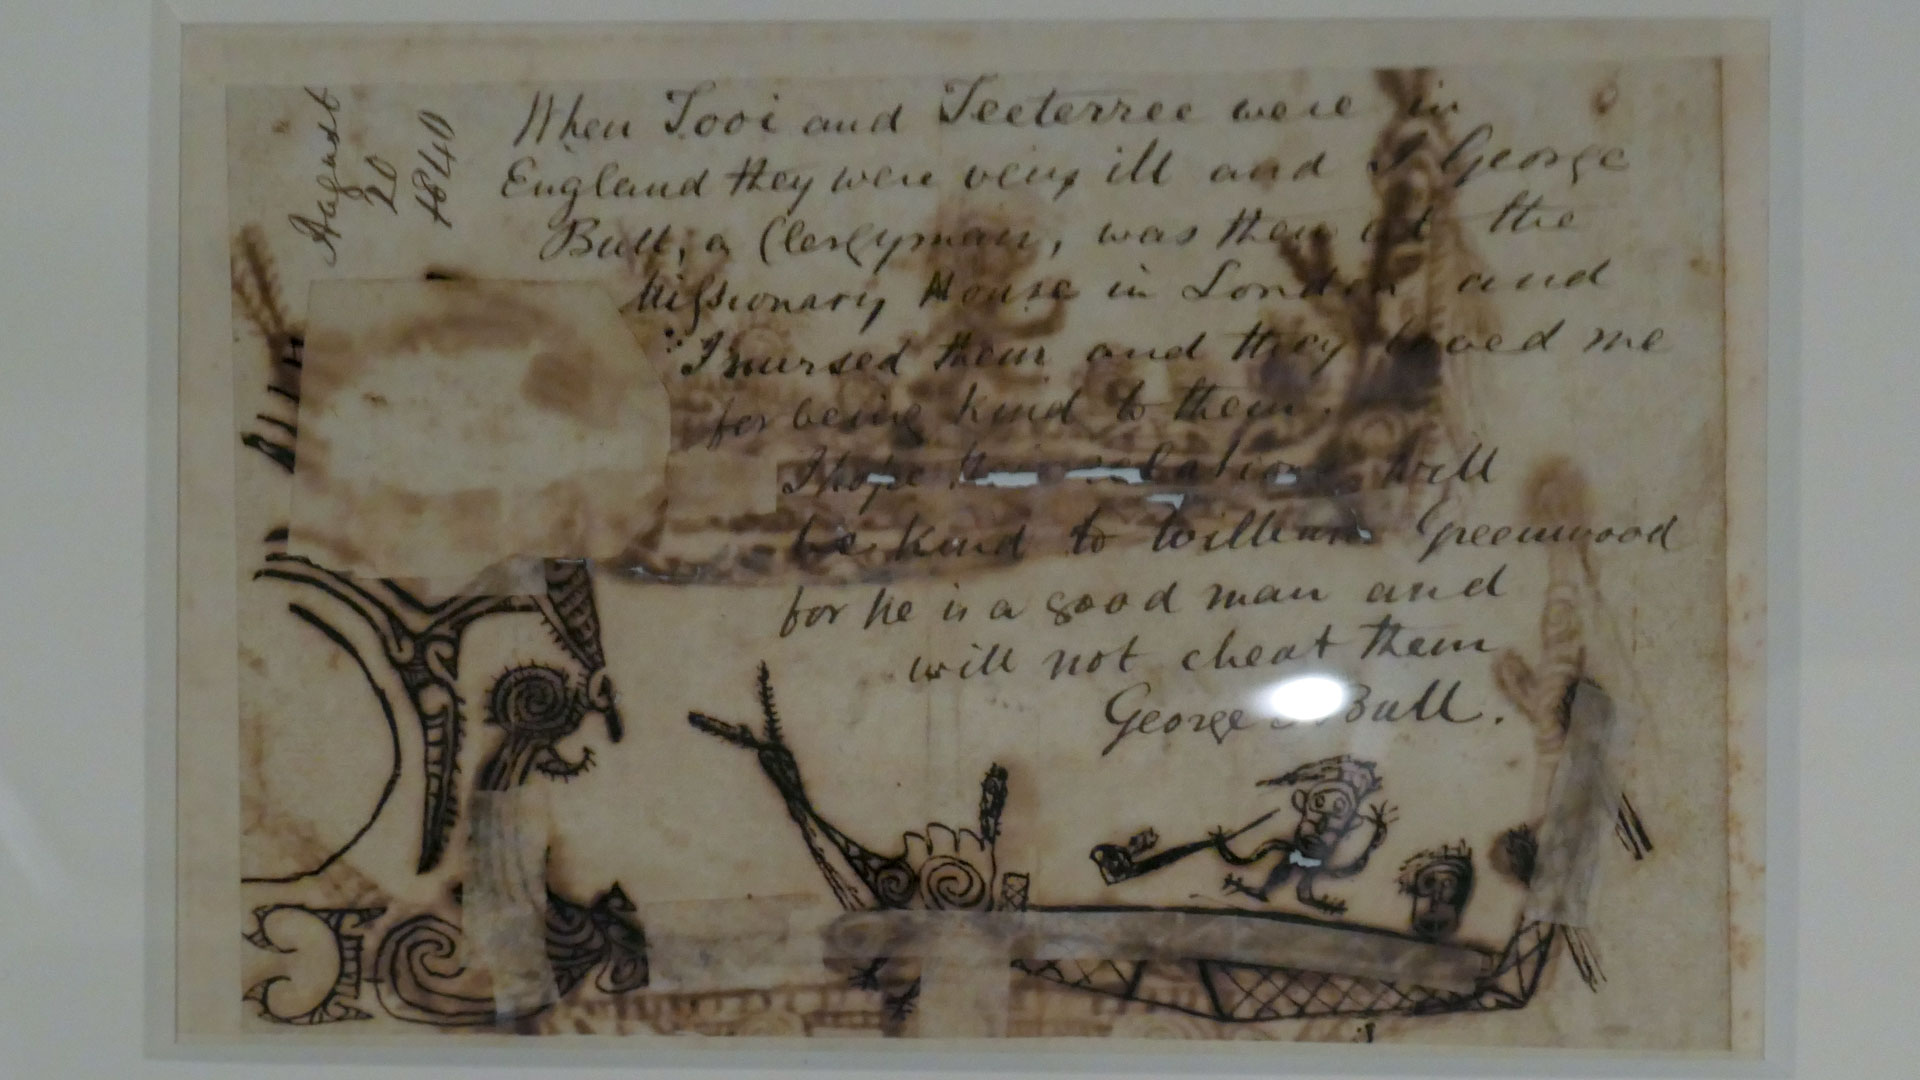 August
20
1840
When Tooi and Teeterree were in
England they were very ill and I George
Bull, a Clergyman, was then at the
Missionary House in London and
I nursed them and they loved me
for being kind to them.
I hope their relations will
be kind to William Greenwood
for he is a good man and
will not cheat them
George Bull.